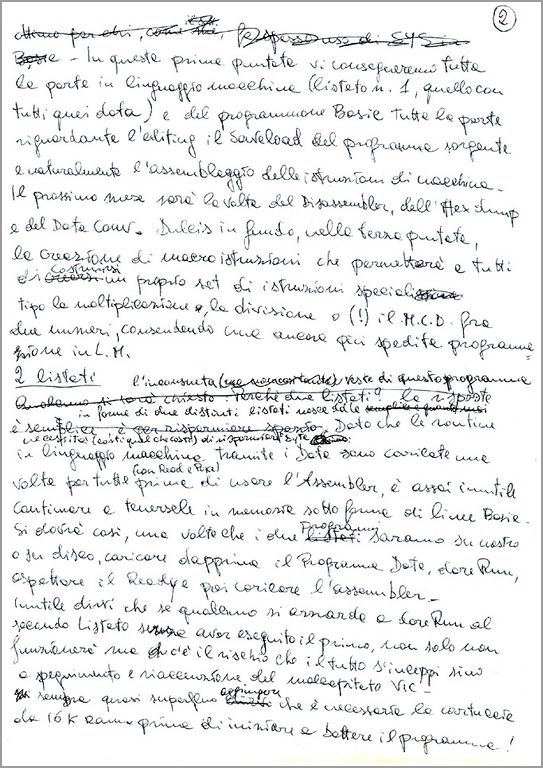 2
Ottimo per chi, come me, fa spesso uso di SYS in
Basic - In questa prima puntata vi consegneremo tutta
la parte in linguaggio macchina (listato n. 1, quello con
tutti quei data) e del programmone Basic tutta la parte
riguardante l'editing il Saveload del programma sorgente
e naturalmente l'assemblaggio delle istruzioni di macchina.
Il prossimo mese sarà la volta del Disassembler, dell'Hex dump
e del Data Conv. Dulcis in fundo, nella terza puntata,
la creazione di macroistruzioni che permetterà a tutti
di costruirsi un proprio set di istruzioni speciali
tipo la moltiplicazione, la divisione o (!) il M.C.D. fra
due numeri, consentendo una ancora più spedita programma=
zione in L.M.
2 listati
l'inconsueta veste di questo programma
Qualcuno si sarà chiesto: Perché due listati? la risposta
in forma di due distinti listati nasce dalla
è semplice: è per risparmiare spazio. Dato che le routine
necessità di risparmiare byte
in linguaggio macchina tramite i Data sono caricate una
(con Read e Poke)
volta per tutte prima di usare l'Assembler, è assai inutile
continuare a tenersele in memoria sotto forma di linee Basic.
Si dovrà così, una volta che i due Programmi saranno su nastro
o su disco, caricare dapprima il Programma Data, dare Run,
aspettare il Ready e poi caricare l'assembler.
Inutile dirvi che se qualcuno si azzarda a dare Run al
secondo Listato senza aver eseguito il primo, non solo non
funzionerà ma c'è il rischio che il tutto s'inceppi sino
a spegnimento e riaccensione del malcapitato Vic -
È sempre quasi superfluo aggiungere che è necessaria la cartuccia
da 16 K ram prima di iniziare a battere il programma!